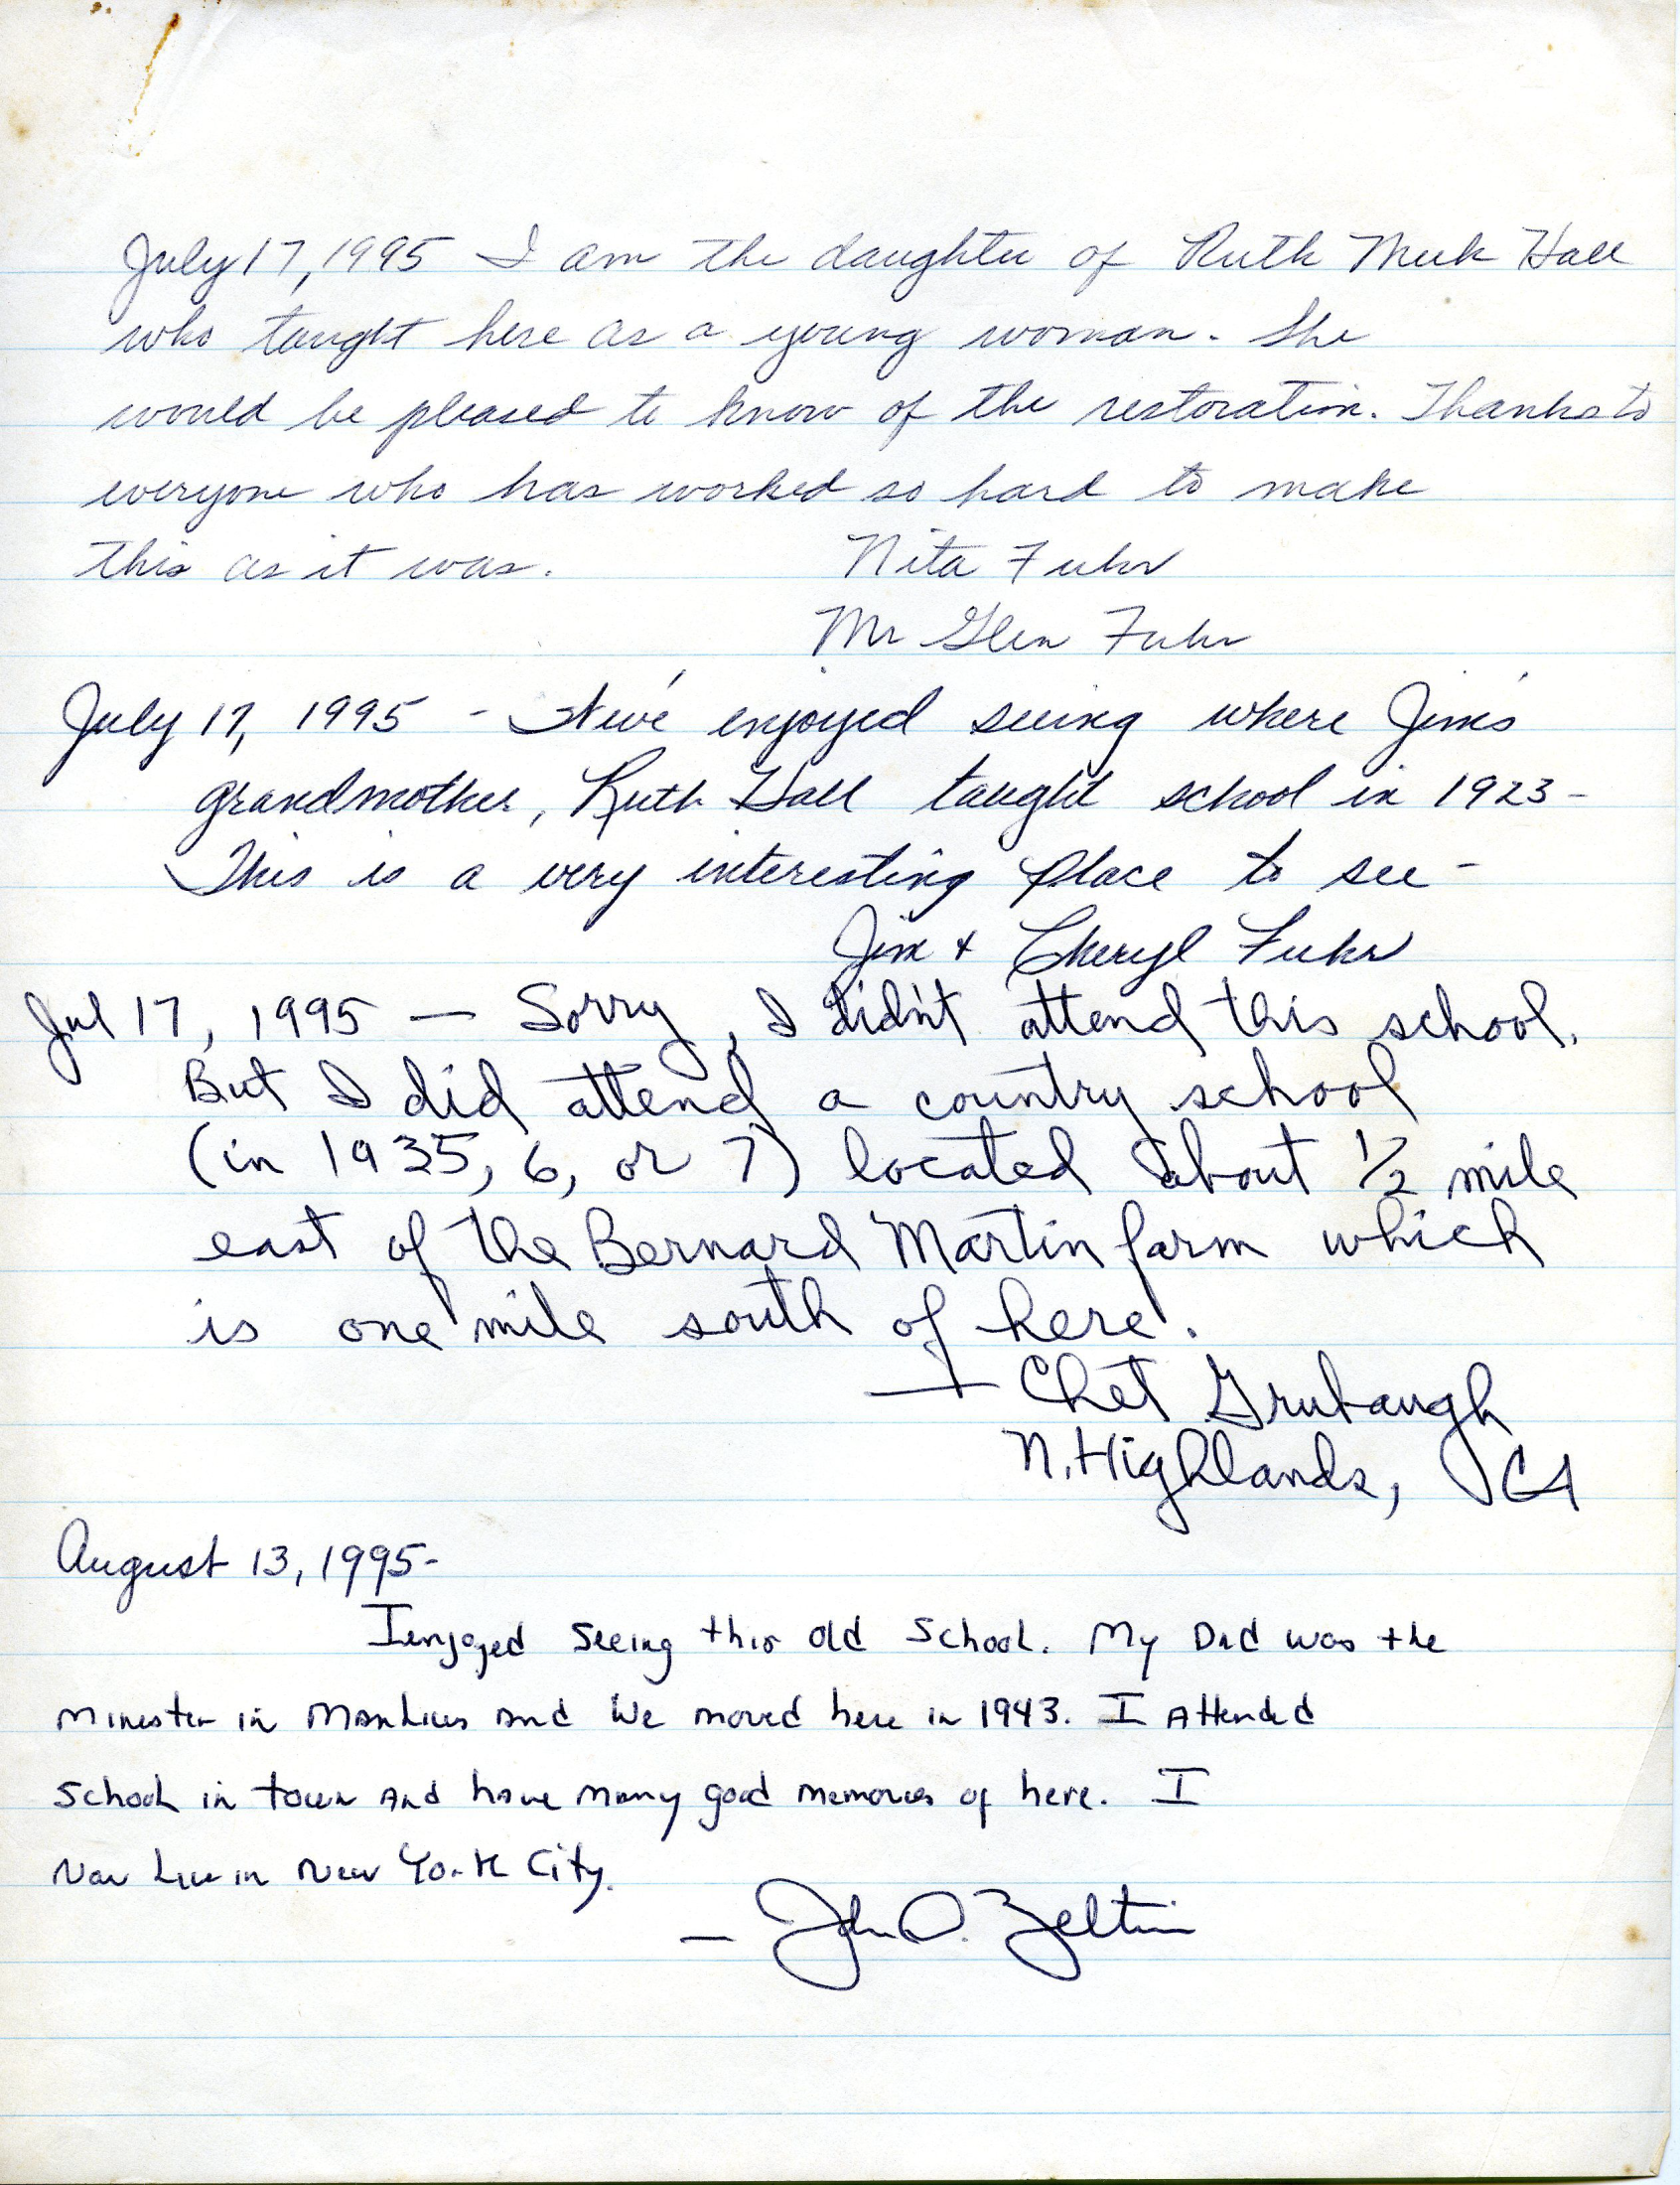 July 17, 1995 I am the daughter of Ruth Meek Hall
who taught here as a young woman. She
would be pleased to know of the restoration. Thanks to
everyone who has worked so hard to make
this as it was. Nita Fuhr
Mr Glen Fuhr
July 17, 1995 - We've enjoyed seeing where Jim's
grandmother, Ruth Hall taught school in 1923 -
This is a very interesting place to see -
Jim + Cheryl Fuhr
Jul 17, 1995 — Sorry, I didn't attend this school.
But I did attend a country school
(in 1935, 6, or 7) located about 1/2 mile
east of the Bernard Martin farm which
is one mile south of here.
— Chet Grubaugh
N. Highlands, CA
August 13, 1995-
I enjoyed seeing this old School. My Dad was the
minester in Manlius and We moved here in 1943. I Attended
School in town And have many good memories of here. I
Now Live in New York City.
— John O. Zeltin